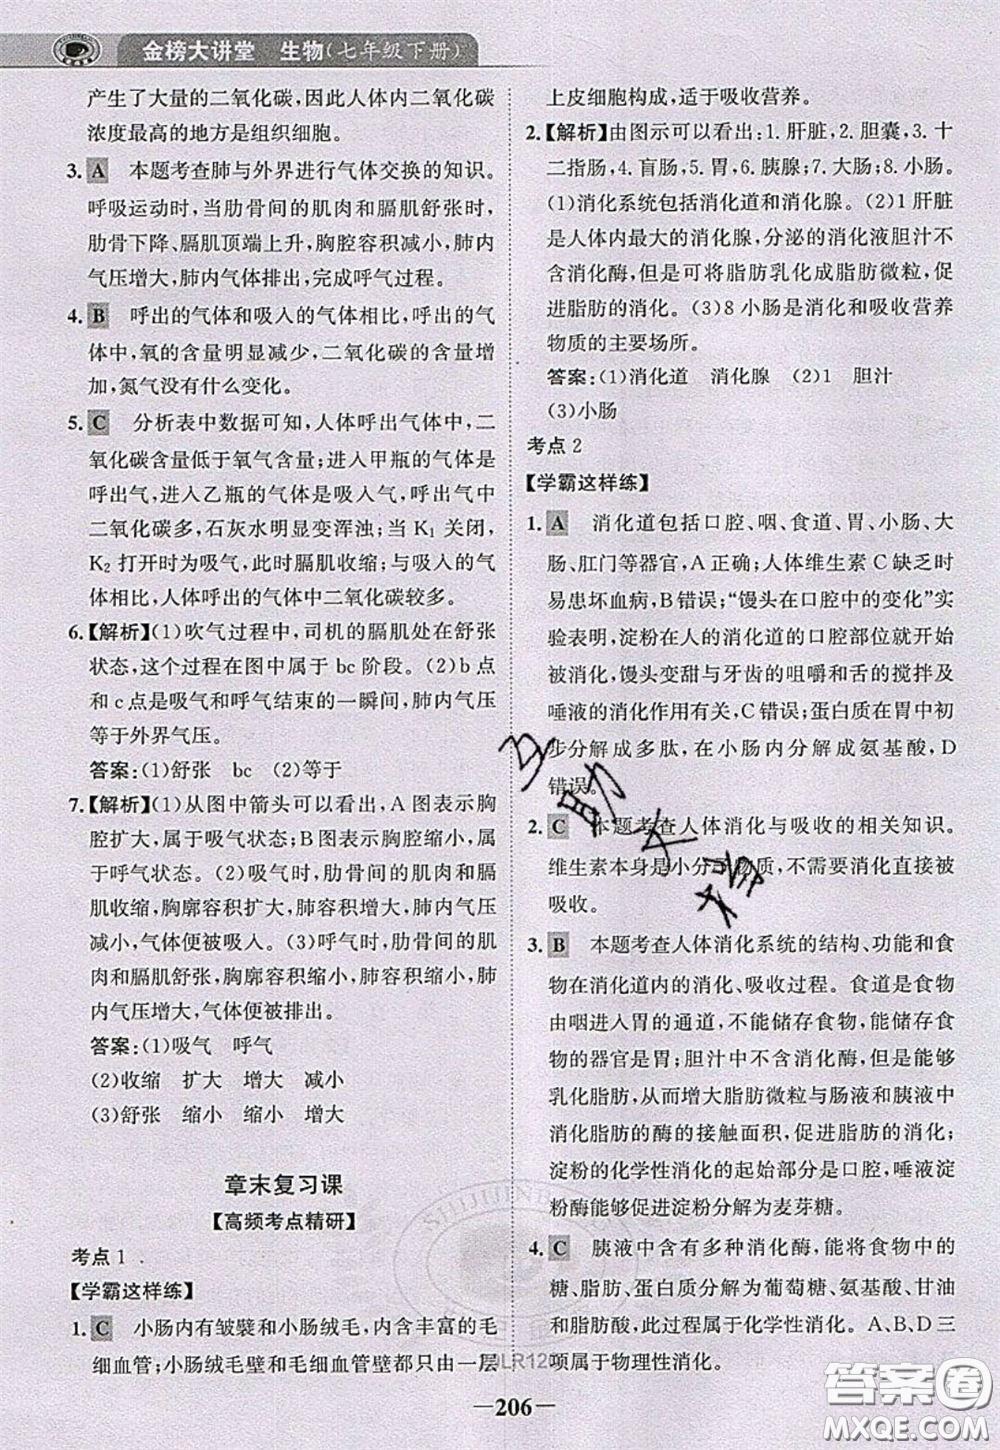 金榜大讲堂 生物(七年级下册)
产生了大量的二氧化碳,因此人体内二氧化碳
浓度最高的地方是组织细胞。
3. A 本题考查肺与外界进行气体交换的知识。
呼吸运动时,当肋骨间的肌肉和膈肌舒张时,
肋骨下降、膈肌顶端上升,胸腔容积减小,肺内
气压增大,肺内气体排出,完成呼气过程。
4. B 呼出的气体和吸入的气体相比,呼出的气
体中,氧的含量明显减少,二氧化碳的含量增
加,氮气没有什么变化。
5. C 分析表中数据可知,人体呼出气体中,二
氧化碳含量低于氧气含量;进入甲瓶的气体是
呼出气,进入乙瓶的气体是吸入气,呼出气中
二氧化碳多,石灰水明显变浑浊;当 K₁ 关闭,
K₂ 打开时为吸气,此时膈肌收缩;与吸入的气
体相比,人体呼出的气体中二氧化碳较多。
6.【解析】(1)吹气过程中,司机的膈肌处在舒张
状态,这个过程在图中属于 bc 阶段。(2)b 点
和 c 点是吸气和呼气结束的一瞬间,肺内气压
等于外界气压。
答案:(1)舒张 bc (2)等于
7.【解析】(1)从图中箭头可以看出,A 图表示胸
腔扩大,属于吸气状态;B 图表示胸腔缩小,属
于呼气状态。(2)吸气时,肋骨间的肌肉和膈
肌收缩,胸廓容积扩大,肺容积扩大,肺内气压
减小,气体便被吸入。(3)呼气时,肋骨间的肌
肉和膈肌舒张,胸廓容积缩小,肺容积缩小,肺
内气压增大,气体便被排出。
答案:(1)吸气 呼气
(2)收缩 扩大 增大 减小
(3)舒张 缩小 缩小 增大
章末复习课
【高频考点精研】
考点 1
【学霸这样练】
1. C 小肠内有皱襞和小肠绒毛,内含丰富的毛
细血管;小肠绒毛壁和毛细血管壁都只由一层
上皮细胞构成,适于吸收营养。
2.【解析】由图示可以看出:1.肝脏,2.胆囊,3.十
二指肠,4.盲肠,5.胃,6.胰腺;7.大肠;8.小肠。
(1)消化系统包括消化道和消化腺。(2)1 肝脏
是人体内最大的消化腺,分泌的消化液胆汁不
含消化酶,但是可将脂肪乳化成脂肪微粒,促
进脂肪的消化。(3)8 小肠是消化和吸收营养
物质的主要场所。
答案:(1)消化道 消化腺 (2)1 胆汁
(3)小肠
考点 2
【学霸这样练】
1. A 消化道包括口腔、咽、食道、胃、小肠、大
肠、肛门等器官,A 正确;人体维生素 C 缺乏时
易患坏血病,B 错误;“馒头在口腔中的变化”实
验表明,淀粉在人的消化道的口腔部位就开始
被消化,馒头变甜与牙齿的咀嚼和舌的搅拌及
唾液的消化作用有关,C 错误;蛋白质在胃中初
步分解成多肽,在小肠内分解成氨基酸,D
错误。
2. C 本题考查人体消化与吸收的相关知识。
维生素本身是小分子物质,不需要消化直接被
吸收。
3. B 本题考查人体消化系统的结构、功能和食
物在消化道内的消化、吸收过程。食道是食物
由咽进入胃的通道,不能储存食物,能储存食物
的器官是胃;胆汁中不含消化酶,但是能够
乳化脂肪,从而增大脂肪微粒与肠液和胰液中
消化脂肪的酶的接触面积,促进脂肪的消化;
淀粉的化学性消化的起始部分是口腔,唾液淀
粉酶能够促进淀粉分解为麦芽糖。
4. C 胰液中含有多种消化酶,能将食物中的
糖、脂肪、蛋白质分解为葡萄糖、氨基酸、甘油
和脂肪酸,此过程属于化学性消化。A、B、D 三
项属于物理性消化。
206
互助文档
答案圈
MXQE.COM